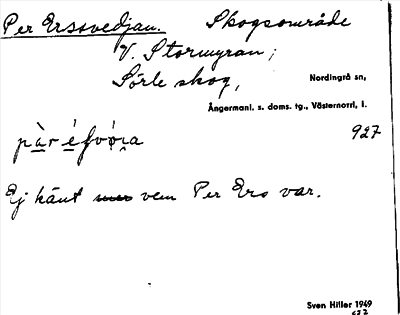 Per Ersovedjan. Skogsområde
V. Stormyran ;
Sörle skog, Nordingrå sn,
Ångermanl. s. doms. tg., Västernorrl. l.
927
Ej känt vem Per Ers var.
Sven Hiller 1949